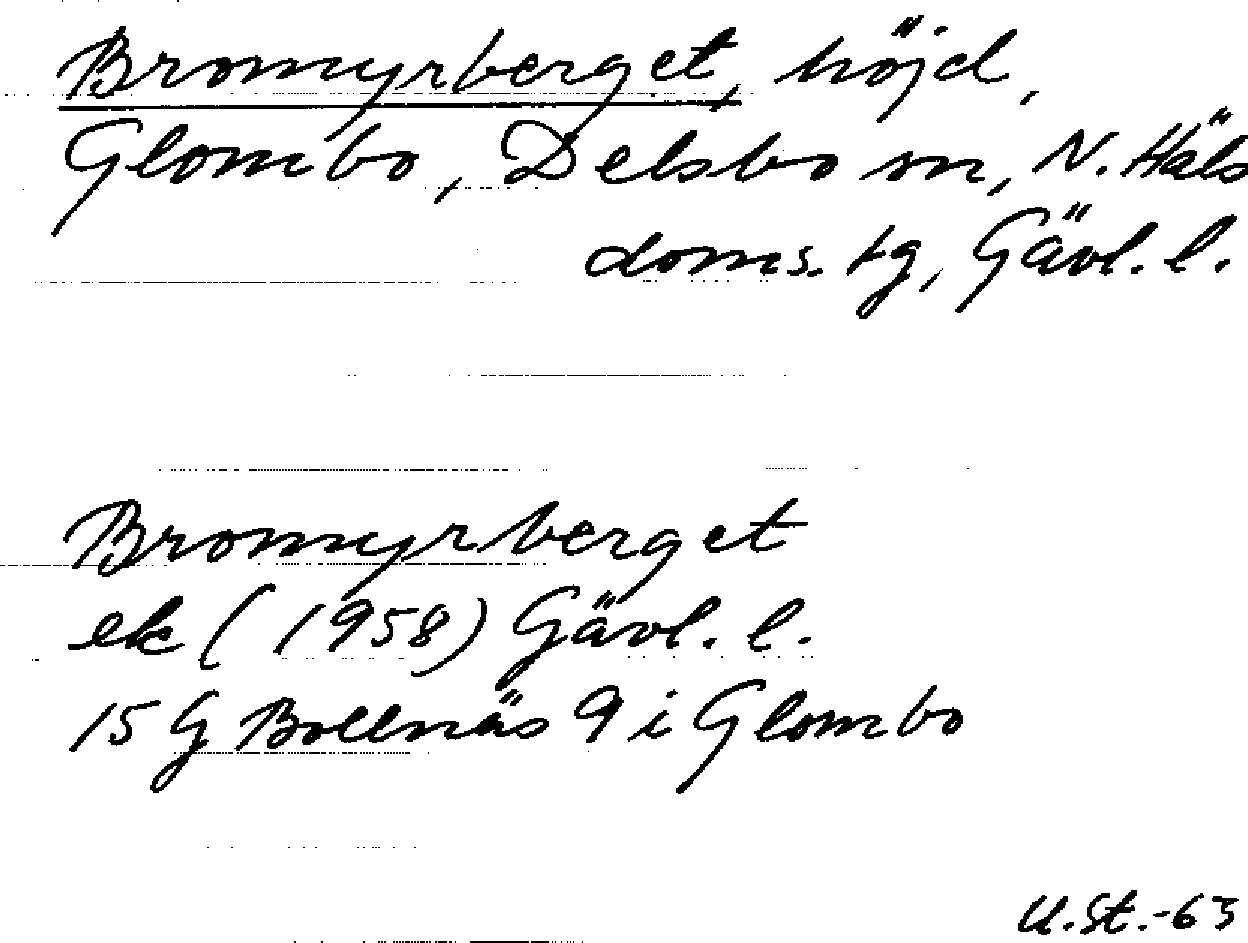 Bromyrberget, höjd,
Glombo, Delsbo sn, N. Häls
doms. tg, Gävl. l.
Bromyrberget
ek (1958) Gävl. l.
15 G Bollnäs 9 i Glombo
U.St.-63